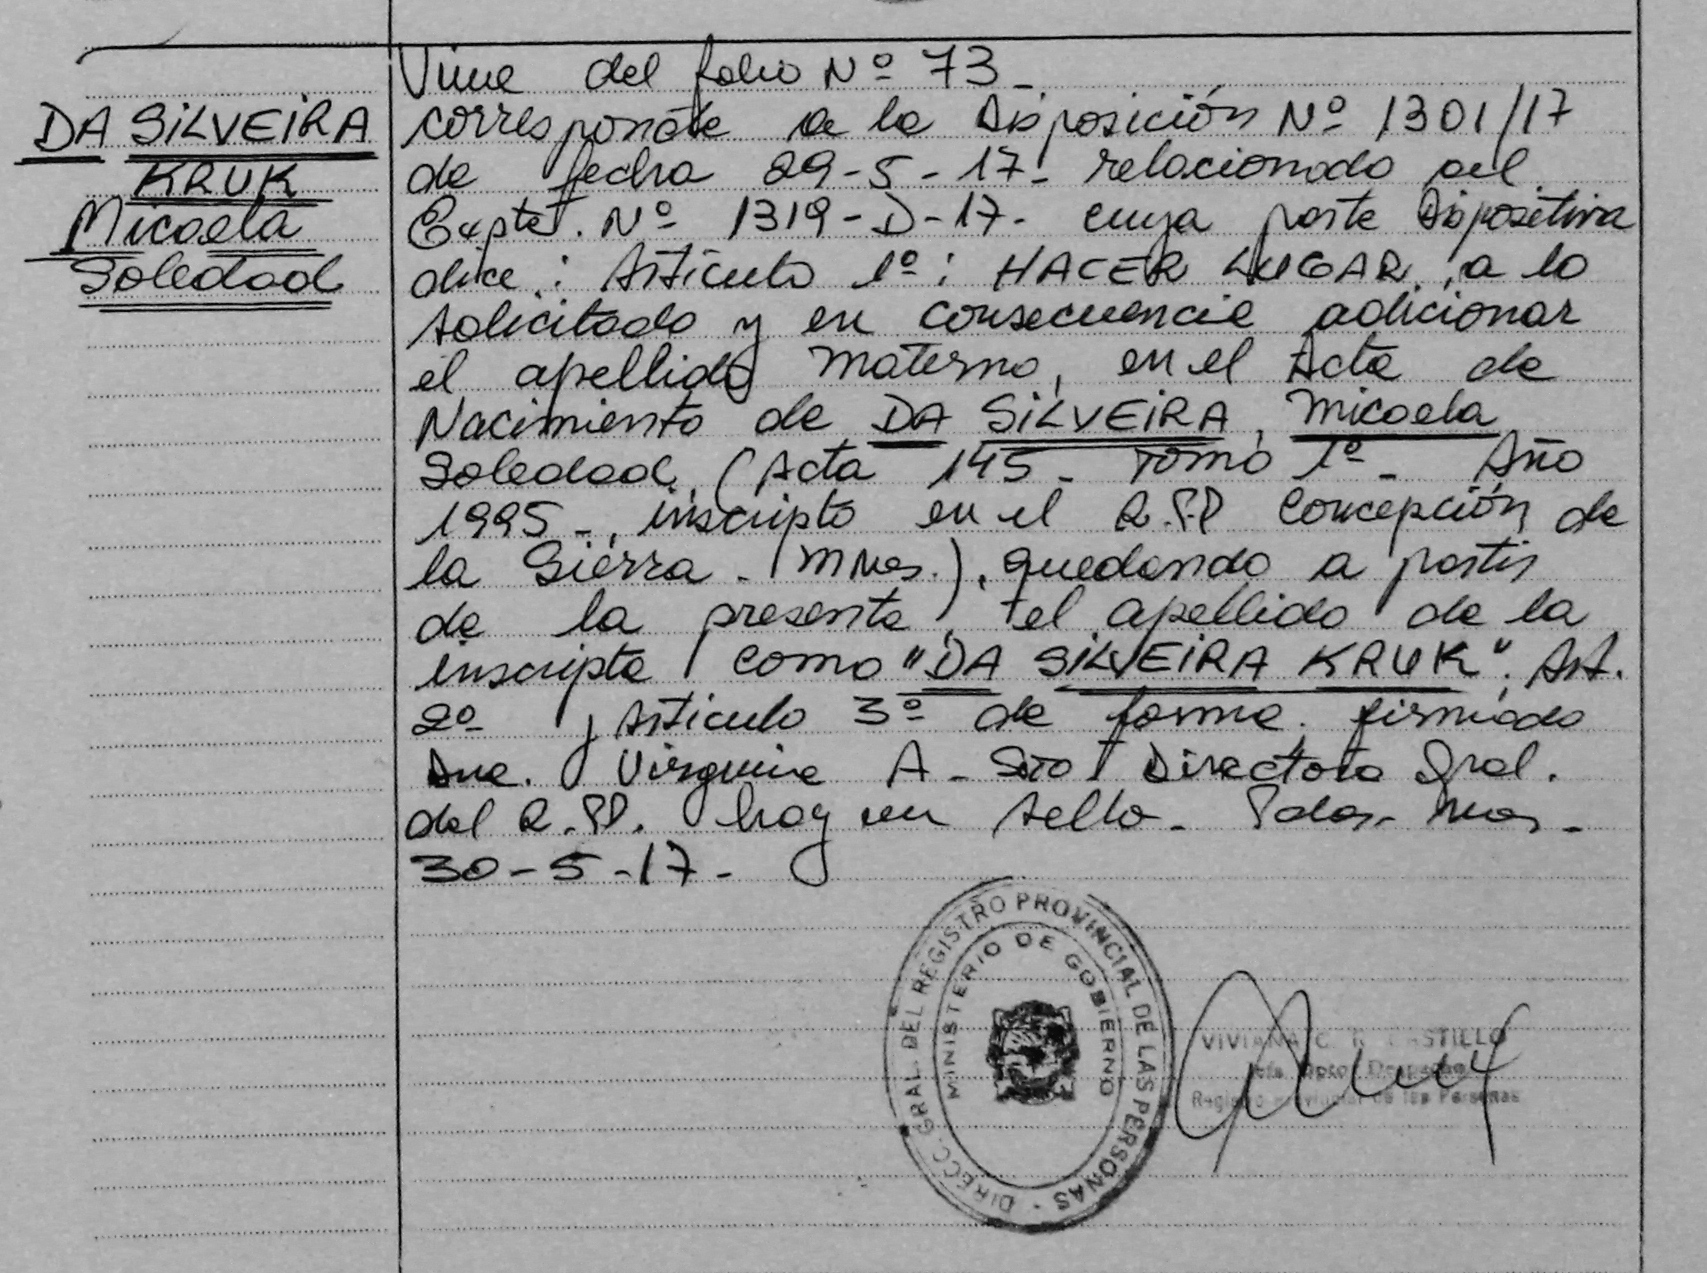 DA SILVEIRA
KRUK
Micaela
Soledad
Viene del folio Nº 73-
correspondte a la Disposición Nº 1301/17
de fecha 29-5-17- relacionado al
Expte. Nº 1319-D-17- cuya parte Dispositiva
dice: Artículo 1º: HACER LUGAR, a lo
solicitado y en consecuencia adicionar
el apellido materno, en el Acta de
Nacimiento de DA SILVEIRA, Micaela
Soledad, (Acta 145- Tomo 1º- Año
1995-, inscripto en el R.PP Concepción de
la Sierra- (Mnes.), quedando a partir
de la presente, el apellido de la
inscripta como "DA SILVEIRA KRUK". Art.
2º y Artículo 3º de forma. firmado
Dra. Virginia A- Directora Gral.
del R.PP. hay un sello- Pdas- Mnes-
30-5-17-
DIRECC. GRAL. DEL REGISTRO PROVINCIAL DE LAS PERSONAS -
MINISTERIO DE GOBIERNO
VIVIANA C. R. CASTILLO
Jefa Dpto. Despacho
Registro Provincial de las Personas